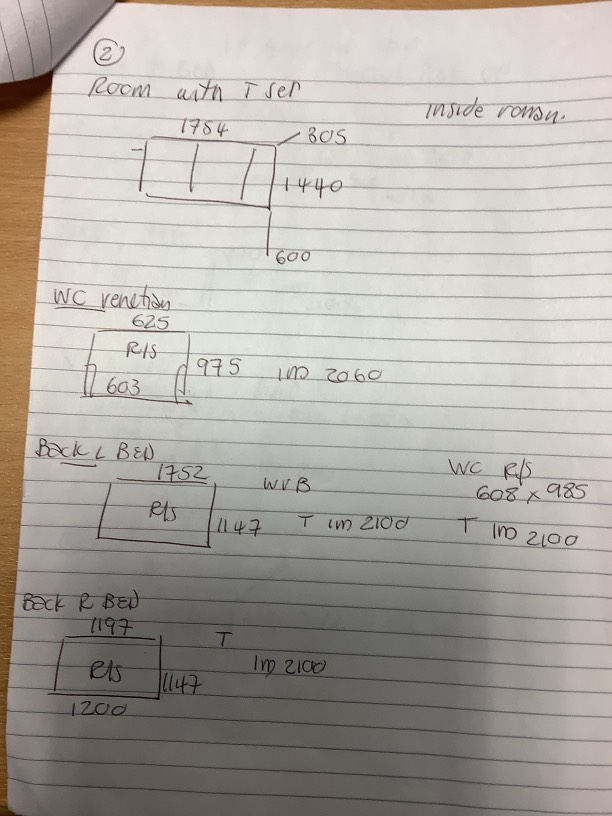 2
Room with T ser
inside roman.
1754
805
1440
600
WC venetian
625
R/S
975
1m 2060
603
Back L BED
1752
WVB
WC R/S
608 x 985
R/S
1147
T 1m 2100
T 1m 2100
Back R BED
1197
T
R/S
1m 2100
1147
1200